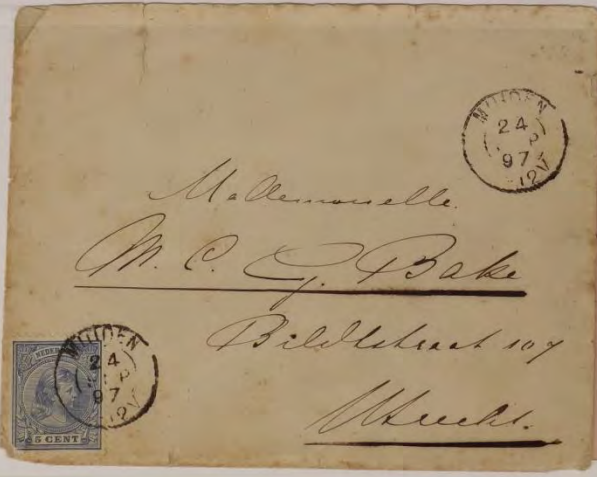 MUIDEN
24
97
12V
Mademoiselle.
M. C. G. Bake
Biltstraat 107
Utrecht.
MUIDEN
24
97
12V
NEDER
5 CENT